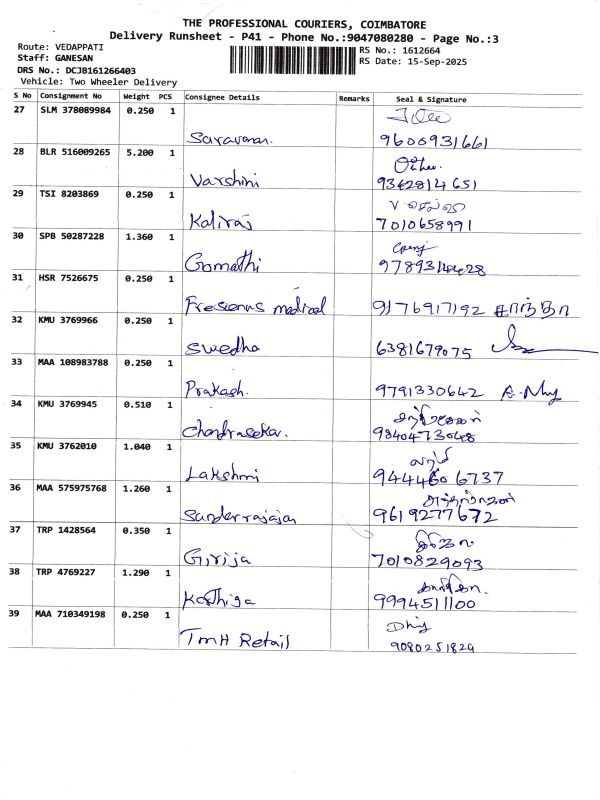 THE PROFESSIONAL COURIERS, COIMBATORE
Delivery Runsheet - P41 - Phone No.:9047080280 - Page No.:3
Route: VEDAPPATI
Staff: GANESAN
DRS No.: DCJB161266403
Vehicle: Two Wheeler Delivery
RS No.: 1612664
RS Date: 15-Sep-2025
S No Consignment No Weight PCS Consignee Details Remarks Seal & Signature
27 SLM 378089984 0.250 1
Saravanan. 9600931661
28 BLR 516009265 5.200 1
Varshini 9362814651
29 TSI 8203869 0.250 1
Kaliraj 7010658991
30 SPB 50287228 1.360 1
Gomathi
31 HSR 7526675 0.250 1
Fresenus medical 9176917192 சாந்தா
32 KMU 3769966 0.250 1
Swedha 6381679075
33 MAA 108983788 0.250 1
Prakash. 9791330642
34 KMU 3769945 0.510 1
Chandrasekar. 9840473048
35 KMU 3762010 1.040 1
லக்ஷ்மி
Lakshmi 9444606737
36 MAA 575975768 1.260 1
Sunderrajajan 9619277672
37 TRP 1428564 0.350 1
கிரிஜா
Girija 7010829093
38 TRP 4769227 1.290 1
கார்த்திகா
Karthiga 9994511100
39 MAA 710349198 0.250 1
TMH Retail 9080251829